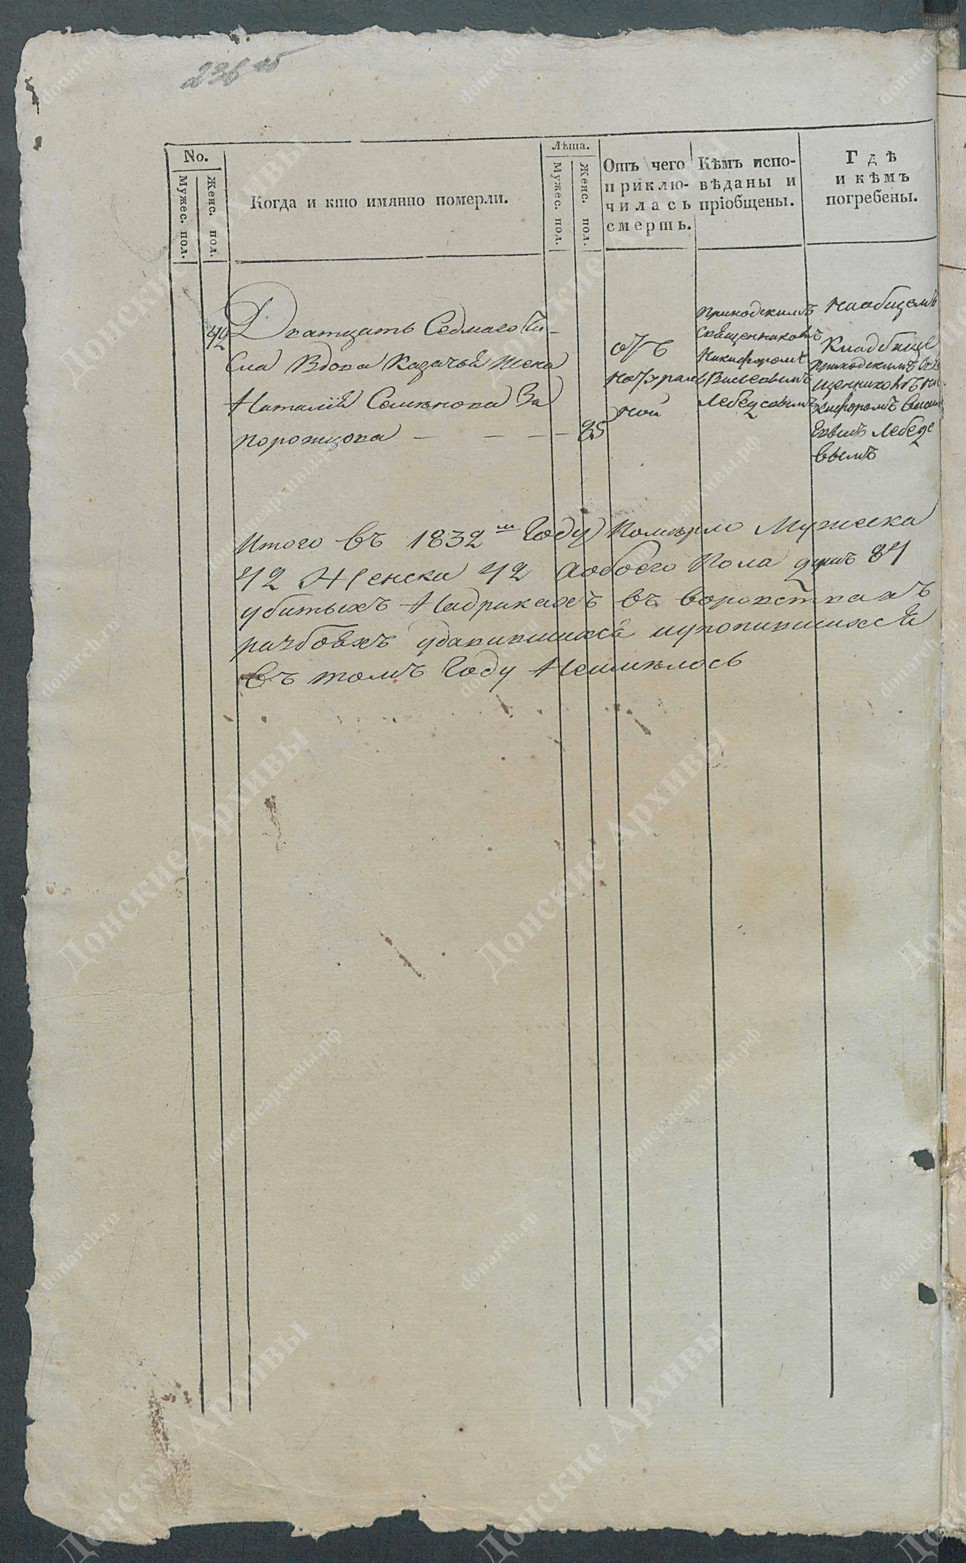 236 об
No.
Мужес. пол.
Женс. пол.
Когда и кто имянно померли.
Лѣта.
Мужес. пол.
Женс. пол.
Отъ чего
приклю-
чилась
смерть.
Кѣмъ испо-
вѣданы и
пріобщены.
Гдѣ
и кѣмъ
погребены.
42
Дватцать Седмаго Чи-
сла Вдова Казачья Жена
Наталія Семѣнова За
порожцова — — — — 85
отъ
Натурал
ной
приходскимъ
Священникомъ
Никифоромъ
Васильевымъ
Лебедевымъ
На общемъ
Кладбище
приходскимъ Свя
щенникомъ Ни
кифоромъ
Лебеде
вымъ
Итого въ 1832 Году Помѣрло Мужеска
42 Женска 42 Аобоего Пола душъ 87
убитыхъ Надракахъ въ воровствахъ
разбояхъ удавившихся иутопившихся
Въ томъ Году Неимѣлось